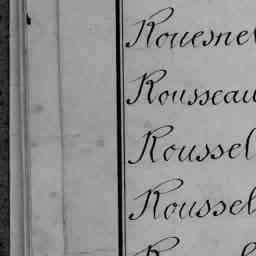 Rouesnel
Rousseau
Roussel
Roussel